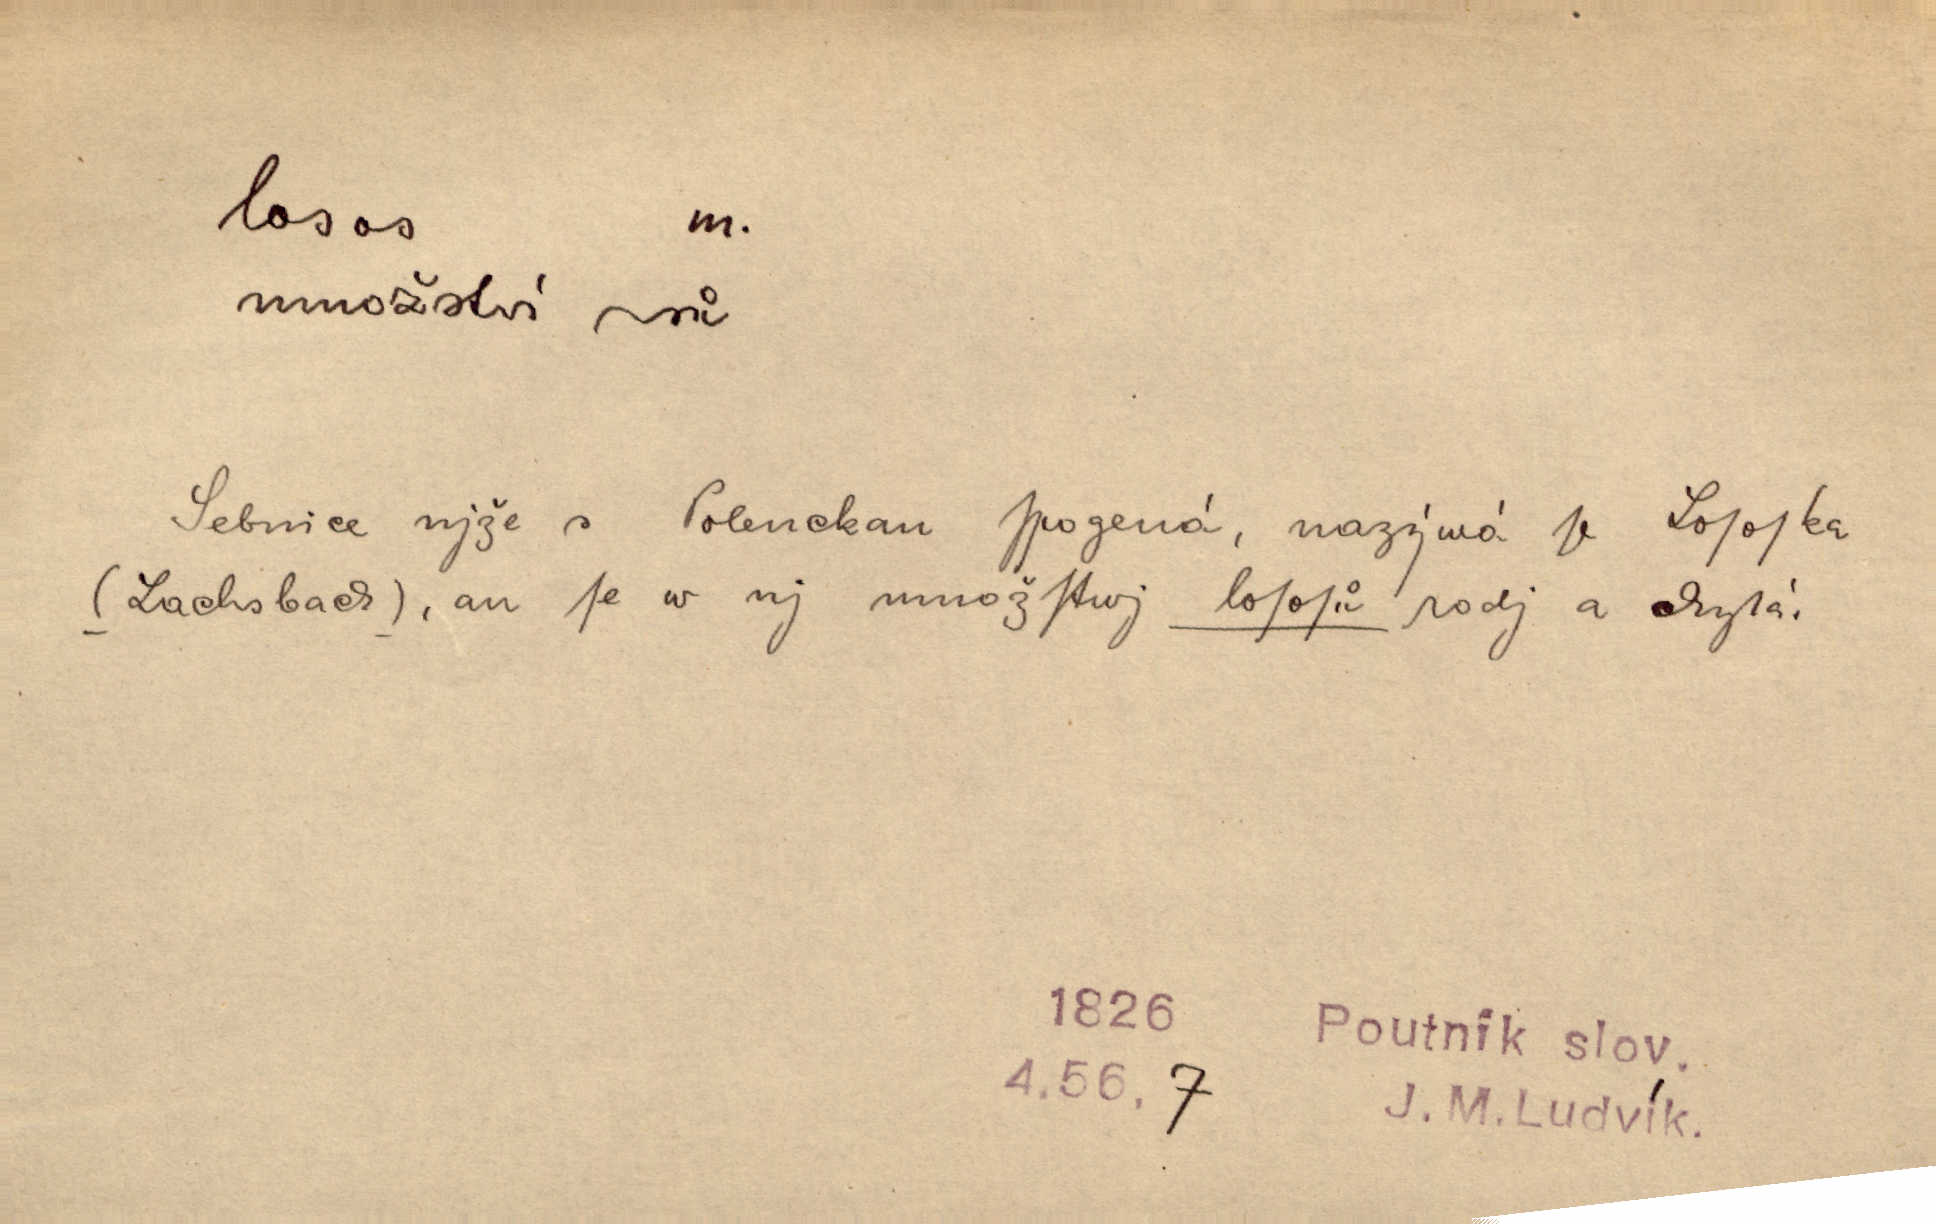 losos m.
množství ~sů
Sebnice njže s Polenckau ſpogená, nazýwá ſe Loſoſka
(Lachsbach), an ſe w nj množſtwj loſoſů rodj a chytá.
1826 Poutník slov.
4.56.7 J.M.Ludvík.